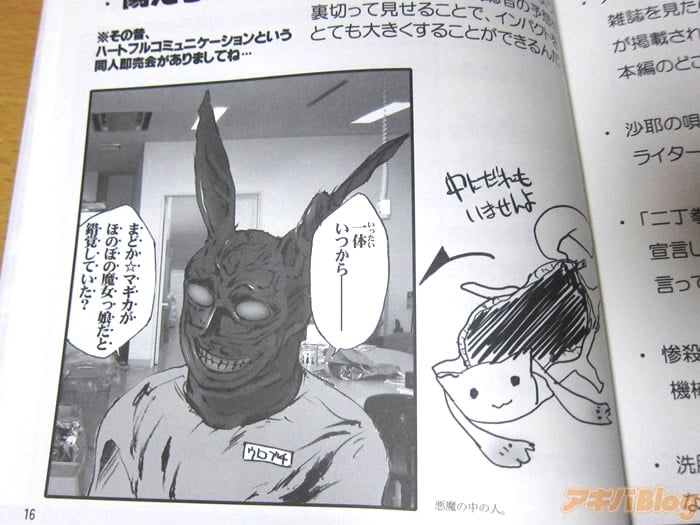 ※その昔、
ハートフルコミュニケーションという
同人即売会がありましてね…
裏切って見せることで、インパクトを
とても大きくすることができるんだ
一体
いったい
いつから――
まどか☆マギカが
ほのぼの魔女っ娘だと
錯覚していた?
ウロブチ
中にだれも
いませんよ
悪魔の中の人。
16
雑誌を見た
が掲載され
本編のどこ
・沙耶の唄
ライター
・「二丁拳
宣言し
言って
・惨殺
機械
・洗脳
アキバBlog